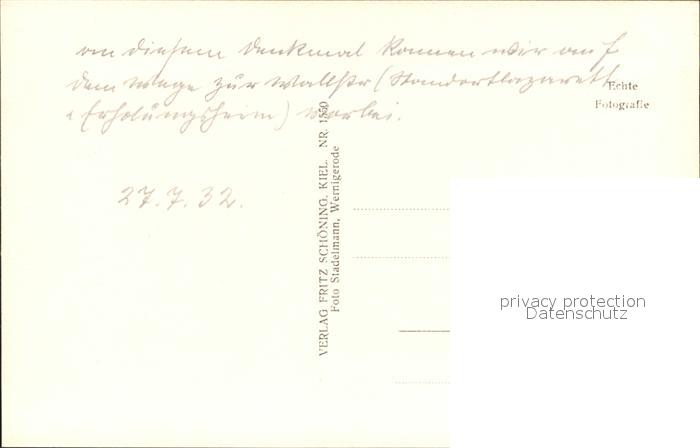 an diesem Denkmal kamen wir auf
dem Wege zur Wallstr (Standortlazarett
u Erholungsheim) vorbei.
27.7.32.
Echte
Fotografie
VERLAG FRITZ SCHÖNING, KIEL. NR. 1550
Foto Stadelmann, Wernigerode
privacy protection
Datenschutz